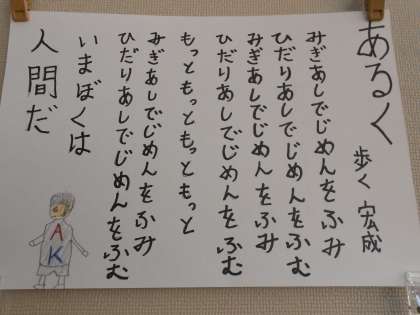 あるく
歩く 宏成
みぎあしでじめんをふみ
ひだりあしでじめんをふむ
みぎあしでじめんをふみ
ひだりあしでじめんをふむ
もっともっともっともっと
みぎあしでじめんをふみ
ひだりあしでじめんをふむ
いまぼくは
人間だ
AK